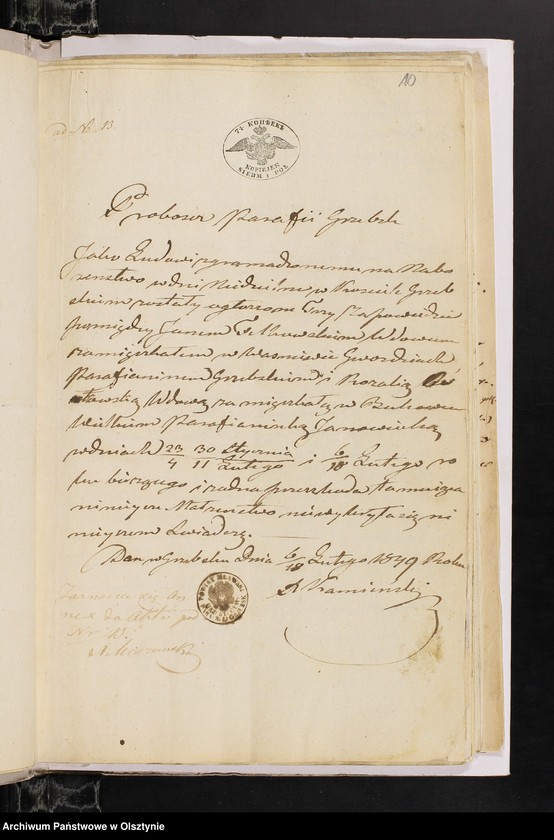 10
ad Nr 13.
7½ КОПѢЕКЪ
KOPIEJEK
SIEDM I PÓŁ
Proboszcz Parafii Grzebsk
Jako Ludowi zgromadzonemu na Nabo
żeństwo w dni Niedzielne w Kościele Grzeb
skim zostały ogłoszone Trzy Zapowiedzie
pomiędzy Janem Wdowcem
zamieszkałem w Gwoździach
Parafianinem Grzebskim, i Rozalią
Wdową zamieszkałą w
Wielkim Parafianką Janowiecką
w dniach 23/4 30/11 Stycznia/Lutego i 6/18 Lutego ro
ku bieżącego i żadna przeszkoda tamująca
niniejsze Małżeństwo nie wykryła się ni
niejszem Świadczę.
Dan w Grzebsku dnia 6/18 Lutego 1849 Roku
Kamieński
Zarazem się An
nex do Aktu pod
Nr 13.
Archiwum Państwowe w Olsztynie